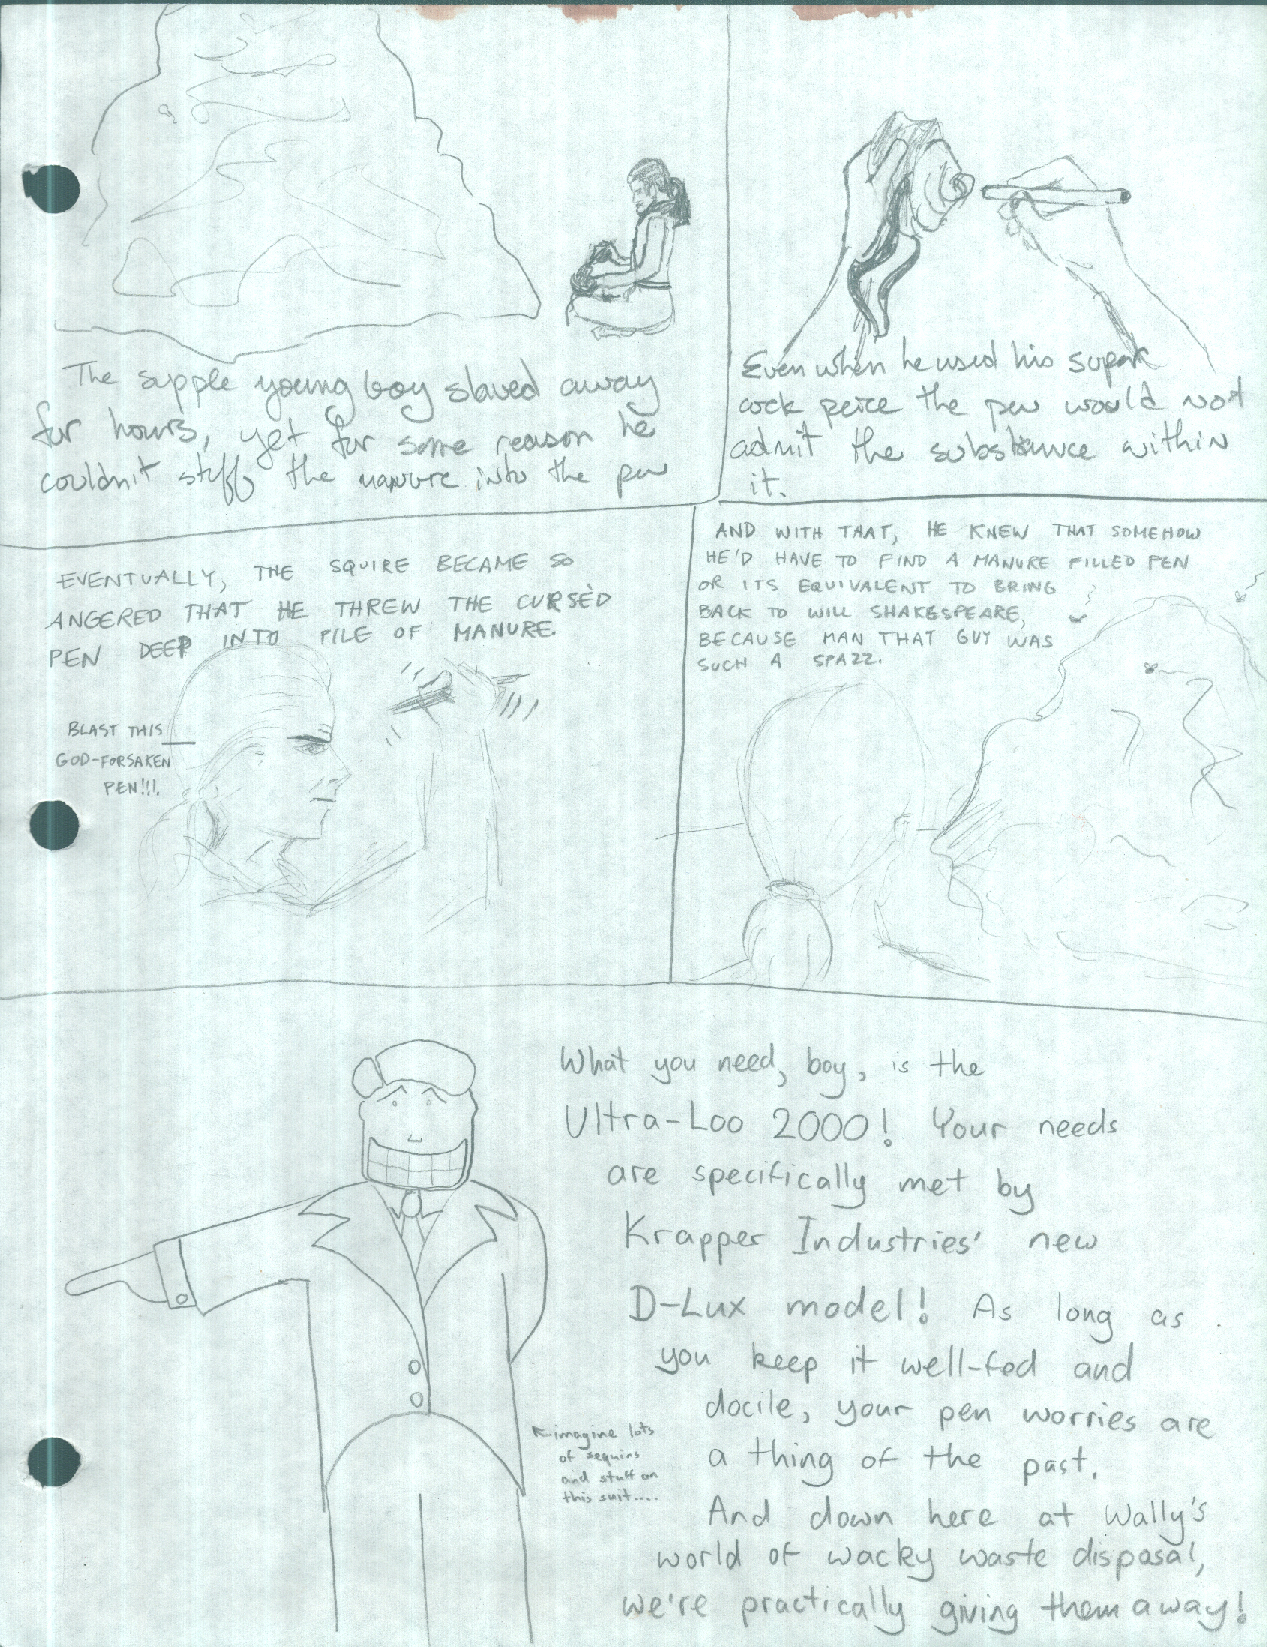 The supple young boy slaved away
for hours, yet for some reason he
couldn't stuff the manure into the pen
Even when he used his super
cock peice the pen would not
admit the substance within
it.
EVENTUALLY, THE SQUIRE BECAME SO
ANGERED THAT HE THREW THE CURSED
PEN DEEP INTO PILE OF MANURE.
BLAST THIS
GOD-FORSAKEN
PEN!!!
AND WITH THAT, HE KNEW THAT SOMEHOW
HE'D HAVE TO FIND A MANURE FILLED PEN
OR ITS EQUIVALENT TO BRING
BACK TO WILL SHAKESPEARE,
BECAUSE MAN THAT GUY WAS
SUCH A SPAZZ.
What you need, boy, is the
Ultra-Loo 2000! Your needs
are specifically met by
Krapper Industries' new
D-Lux model! As long as
you keep it well-fed and
docile, your pen worries are
a thing of the past.
And down here at Wally's
world of wacky waste disposal,
we're practically giving them away!
imagine lots
of sequins
and stuff on
this suit....